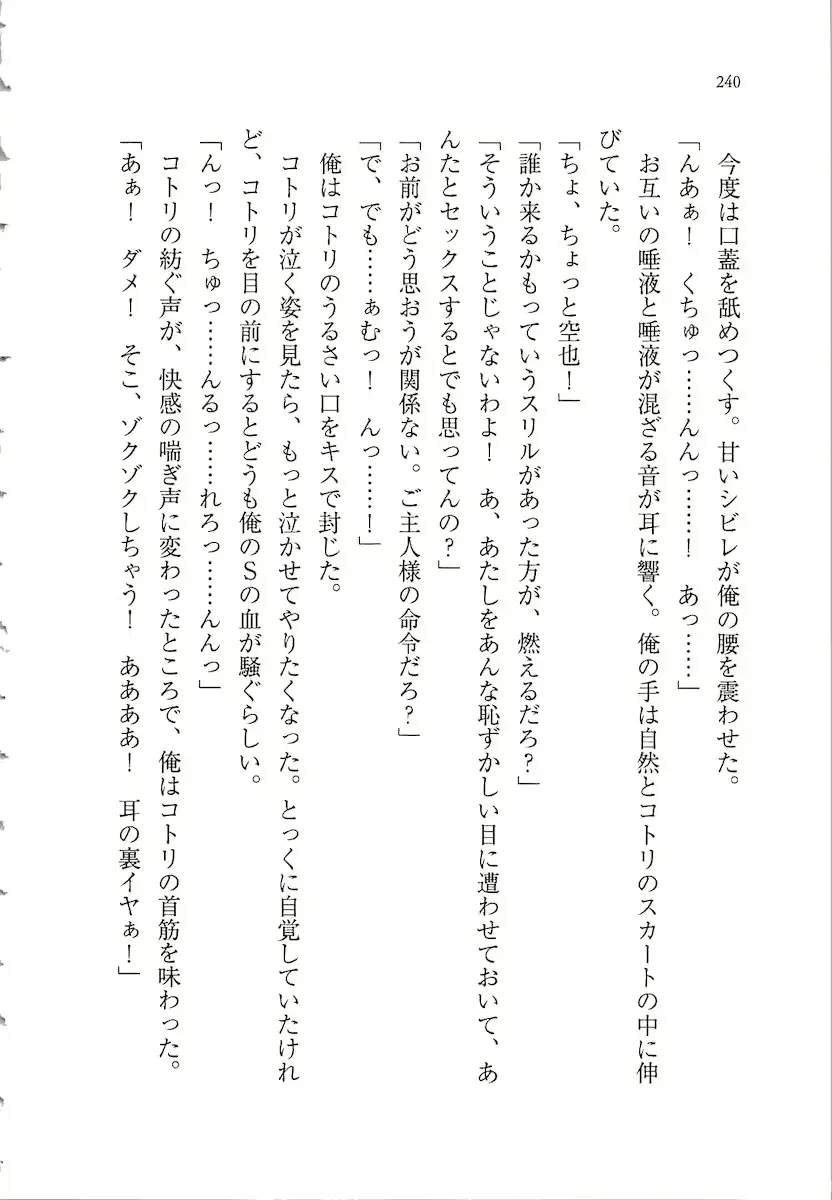 240
今度は口蓋を舐めつくす。甘いシビレが俺の腰を震わせた。
「んあぁ！　くちゅっ……んんっ……！　あっ……」
お互いの唾液と唾液が混ざる音が耳に響く。俺の手は自然とコトリのスカートの中に伸
びていた。
「ちょ、ちょっと空也！」
「誰か来るかもっていうスリルがあった方が、燃えるだろ？」
「そういうことじゃないわよ！　あ、あたしをあんな恥ずかしい目に遭わせておいて、あ
んたとセックスするとでも思ってんの？」
「お前がどう思おうが関係ない。ご主人様の命令だろ？」
「で、でも……ぁむっ！　んっ……！」
俺はコトリのうるさい口をキスで封じた。
コトリが泣く姿を見たら、もっと泣かせてやりたくなった。とっくに自覚していたけれ
ど、コトリを目の前にするとどうも俺のＳの血が騒ぐらしい。
「んっ！　ちゅっ……んるっ……れろっ……んんっ」
コトリの紡ぐ声が、快感の喘ぎ声に変わったところで、俺はコトリの首筋を味わった。
「あぁ！　ダメ！　そこ、ゾクゾクしちゃう！　ああああ！　耳の裏イヤぁ！」